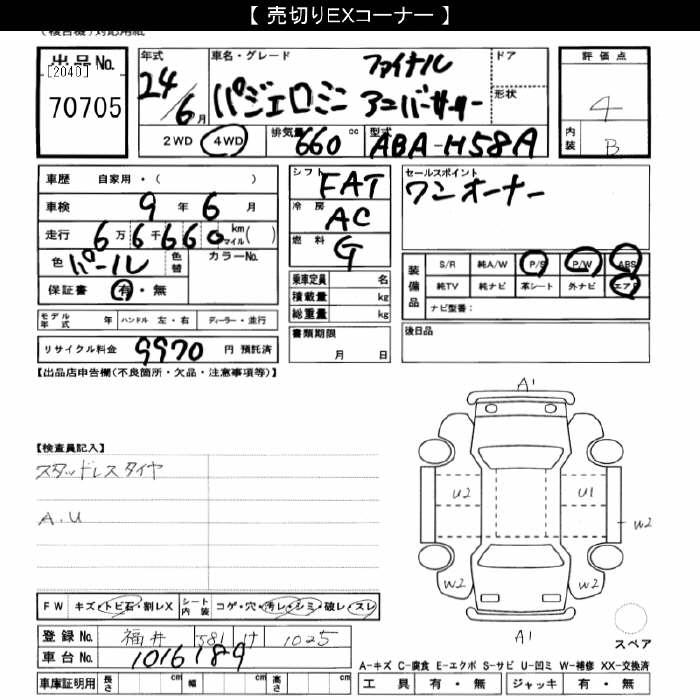 【 売切りEXコーナー 】
(複合機)対応用紙
出品No.
[2040]
70705
年式 24/6月
車名・グレード パジェロミニ ファイナル アニバーサリー
ドア
形状
2WD 4WD
排気量 660 cc
型式 ABA-H58A
評価点 4
内装 B
車歴 自家用・( )
車検 9年 6月
走行 6万6千660 km マイル( )
色 パール 色替 カラーNo.
保証書 有・無
モデル年式 年 ハンドル 左・右 ディーラー・走行
リサイクル料金 9970 円 預託済
シフト FAT
冷房 AC
燃料 G
乗車定員 名
積載量 kg
総重量 kg
書類期限
月 日
セールスポイント
ワンオーナー
装備品 S/R 純A/W P/S P/W ABS
純TV 純ナビ 革シート 外ナビ エアB
ナビ型番:
後日品
【出品店申告欄(不良箇所・欠品・注意事項等)】
【検査員記入】
スタッドレスタイヤ
A.U
A1
U2 U1
W2
W2 W2
A1
スペア
FW キズ・トビ石・割レX シート内装 コゲ・穴・汚レ・シミ・破レ・スレ
登録No. 福井 581 け 1025
車台No. 1016189
車庫証明用 長さ cm 幅 cm 高さ cm
A-キズ C-腐食 E-エクボ S-サビ U-凹ミ W-補修 XX-交換済
工具 有・無 ジャッキ 有・無